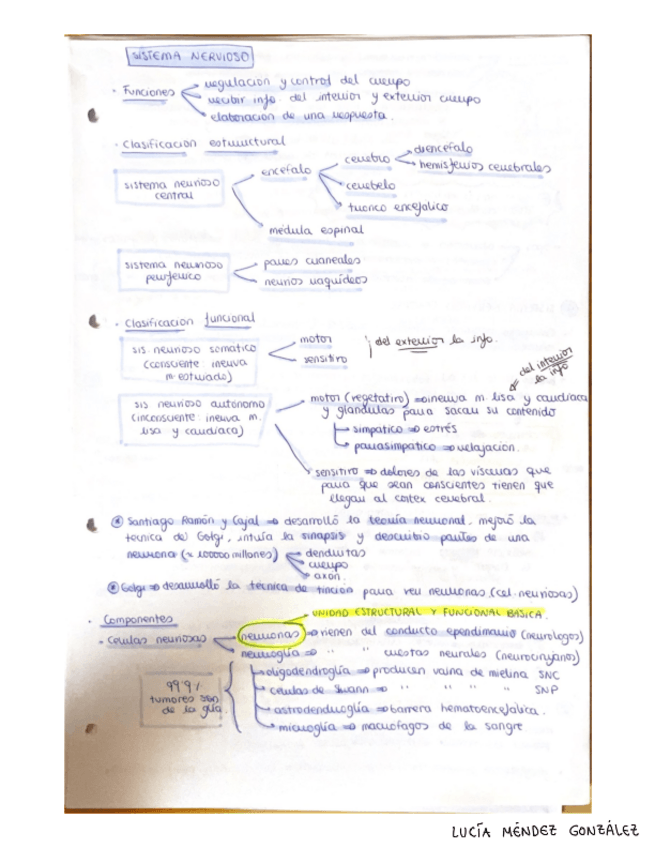 SISTEMA NERVIOSO
· Funciones
regulacion y control del cuerpo
recibir info del interior y exterior cuerpo
elaboracion de una respuesta.
· Clasificacion estructural
sistema nervioso central
encefalo
cerebro
diencefalo
hemisferios cerebrales
cerebelo
tronco encefalico
médula espinal
sistema nervioso periferico
pares craneales
nervios raquideos
· Clasificacion funcional
sis. nervioso somatico (consciente: inerva m. estriado)
motor
sensitivo
del exterior la info.
sis nervioso autonomo (inconsciente: inerva m. lisa y cardiaca)
del interior la info
motor (vegetativo) ⇒ inerva m. lisa y cardiaca
y glandulas para sacar su contenido
simpatico ⇒ estrés
parasimpatico ⇒ relajacion.
sensitivo ⇒ dolores de las visceras que
para que sean conscientes tienen que
llegar al cortex cerebral.
Santiago Ramón y Cajal ⇒ desarrolló la teoria neuronal, mejoró la
tecnica de Golgi, intuía la sinapsis y describio partes de una
neurona (≈ 100000 millones)
dendritas
cuerpo
axon.
Golgi ⇒ desarrolló la tecnica de tincion para ver neuronas (cel. nerviosas)
· Componentes
UNIDAD ESTRUCTURAL Y FUNCIONAL BASICA.
- Celulas nerviosas
neuronas ⇒ vienen del conducto ependimario (neurologos)
neuroglia ⇒ " " crestas neurales (neurocirujanos)
99'9% tumores son de la glia
oligodendroglia ⇒ producen vaina de mielina SNC
celulas de Swann ⇒ " " " " SNP
astrodendroglia ⇒ barrera hematoencefalica.
microglia ⇒ macrofagos de la sangre
LUCÍA MÉNDEZ GONZÁLEZ